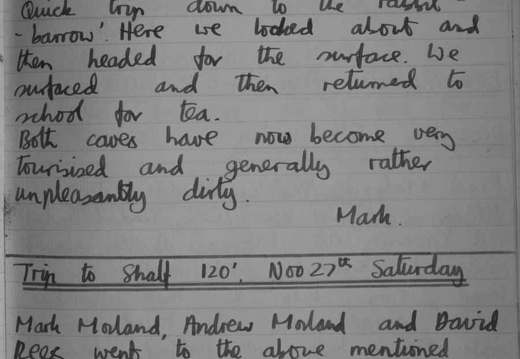 Quick trip down to the rabbit
- barrow'. Here we looked about and
then headed for the surface. We
surfaced and then returned to
school for tea.
Both caves have now become very
tourisised and generally rather
unpleasantly dirty.
Mark.
Trip to Shalf 120'. Nov 27th Saturday
Mark Morland, Andrew Morland and David
Rees went to the above mentioned